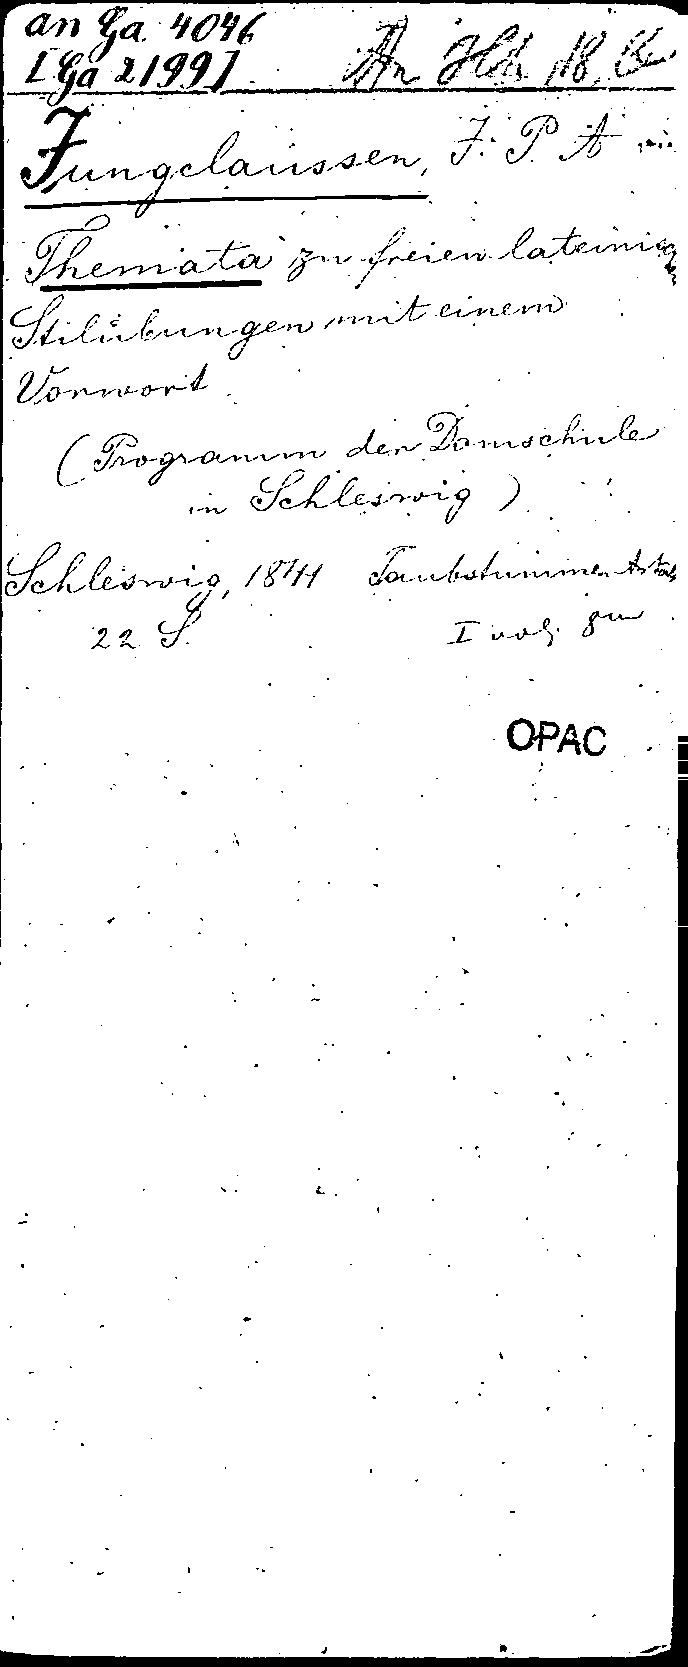 an Ga 4046
[Ga 2199]
Jungclaussen, J. P. A
Themata zu freien lateinischen
Stilübungen mit einem
Vorwort
(Programm der Domschule
in Schleswig)
Schleswig, 1841 Taubstummen Anstalt
22 S.
I vol.
OPAC